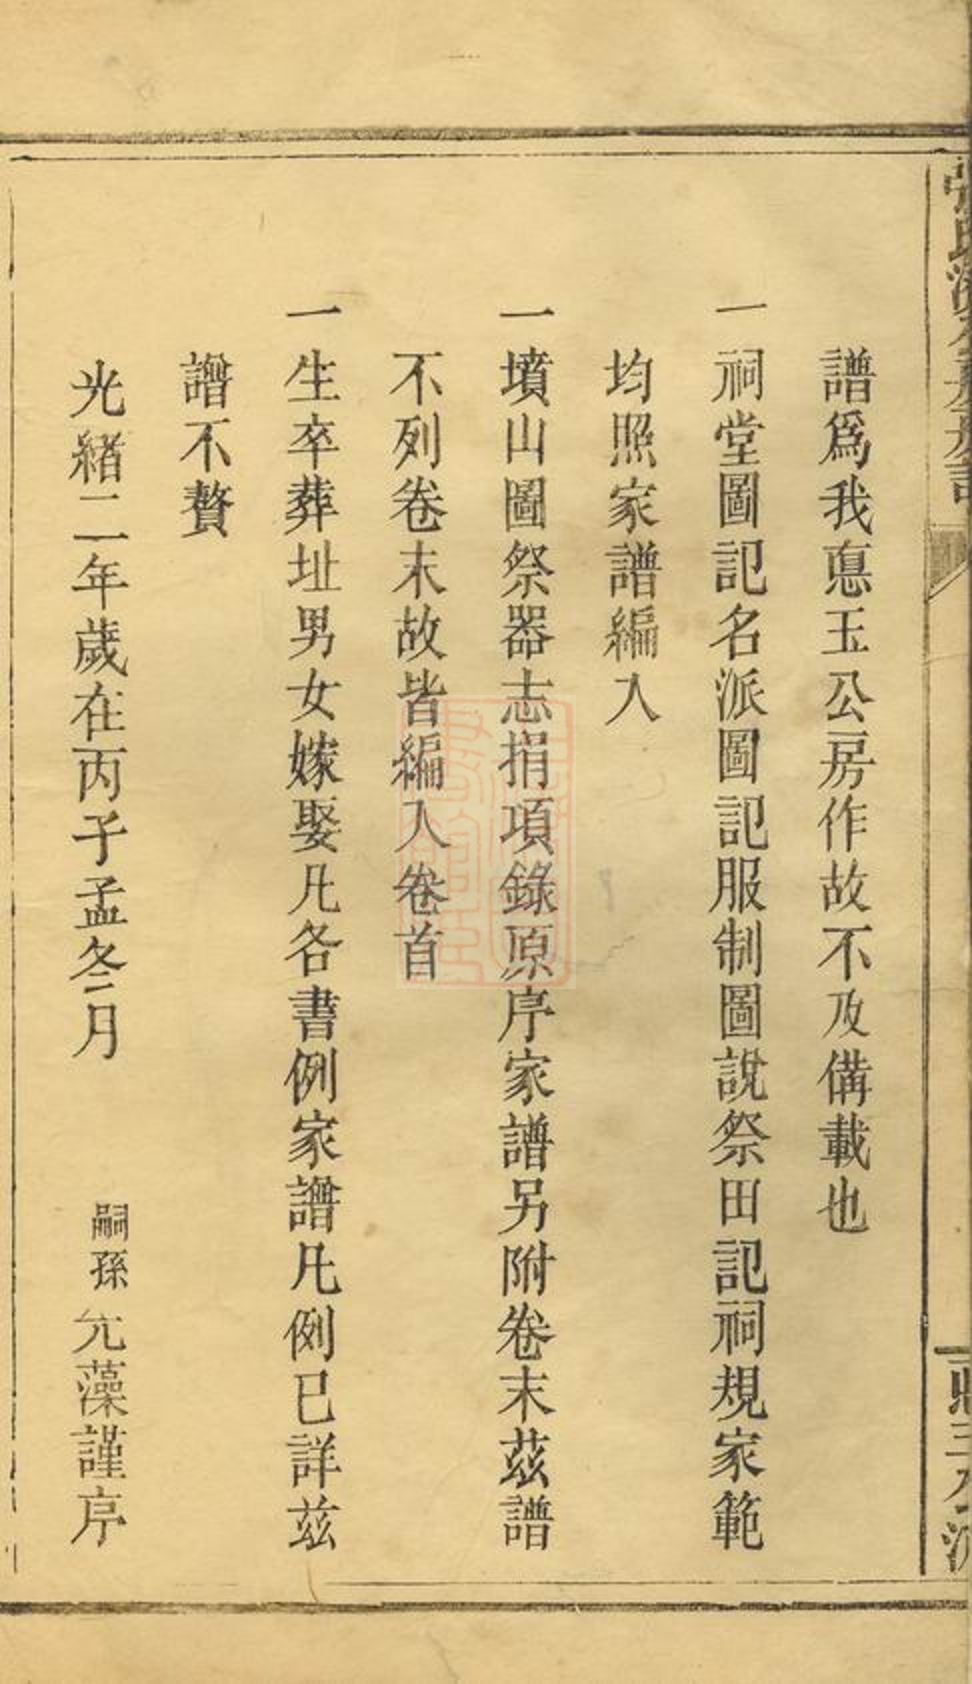 譜爲我惪玉公房作故不及備載也
一祠堂圖記名派圖記服制圖說祭田記祠規家範
均照家譜編入
一墳山圖祭器志捐項錄原序家譜另附卷末茲譜
不列卷末故皆編入卷首
一生卒葬址男女嫁娶凡各書例家譜凡例已詳茲
譜不贅
光緒二年歲在丙子孟冬月 嗣孫元藻謹序